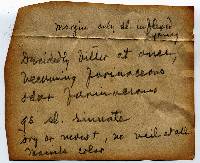 margin only sl. inflexed
Decidedly bitter at once,
becoming farinaceous
also farinaceous
gs sl. sinuate
dry or moist, no veil at all
same color